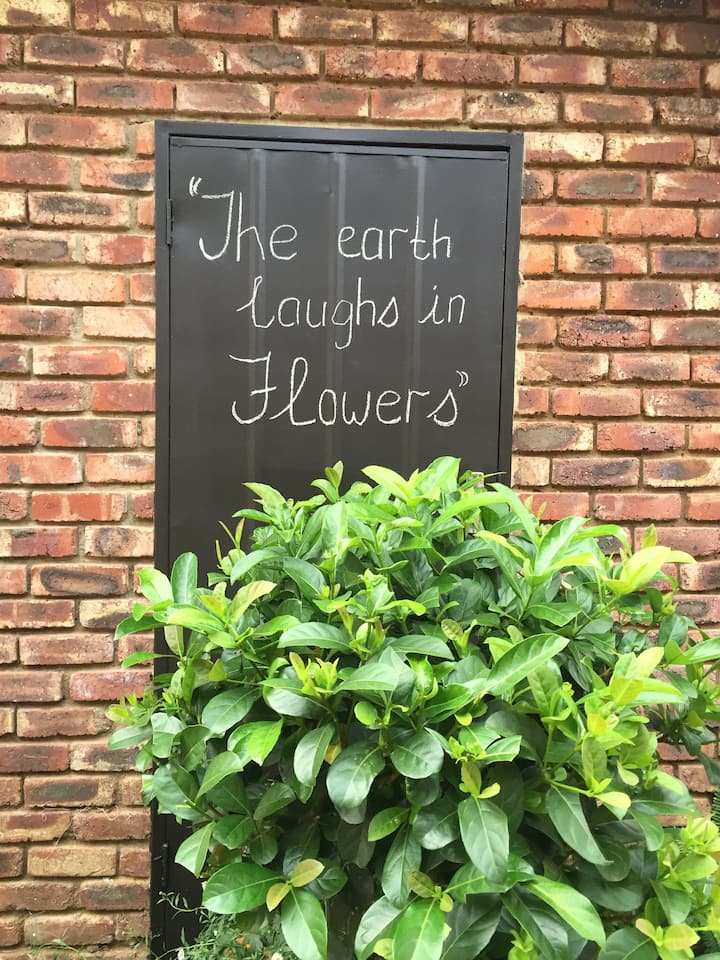 "The earth
laughs in
Flowers"